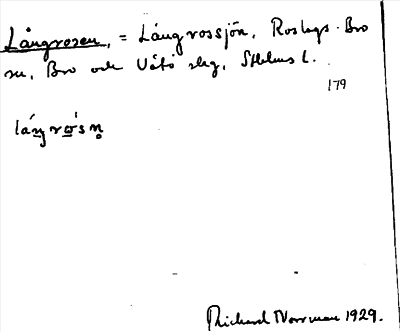 Långrosen, = Långrossjön, Roslags-Bro
sn, Bro och Vätö slg, Sthlms l.
179
lángrósn̥
Richard Norrman 1929.